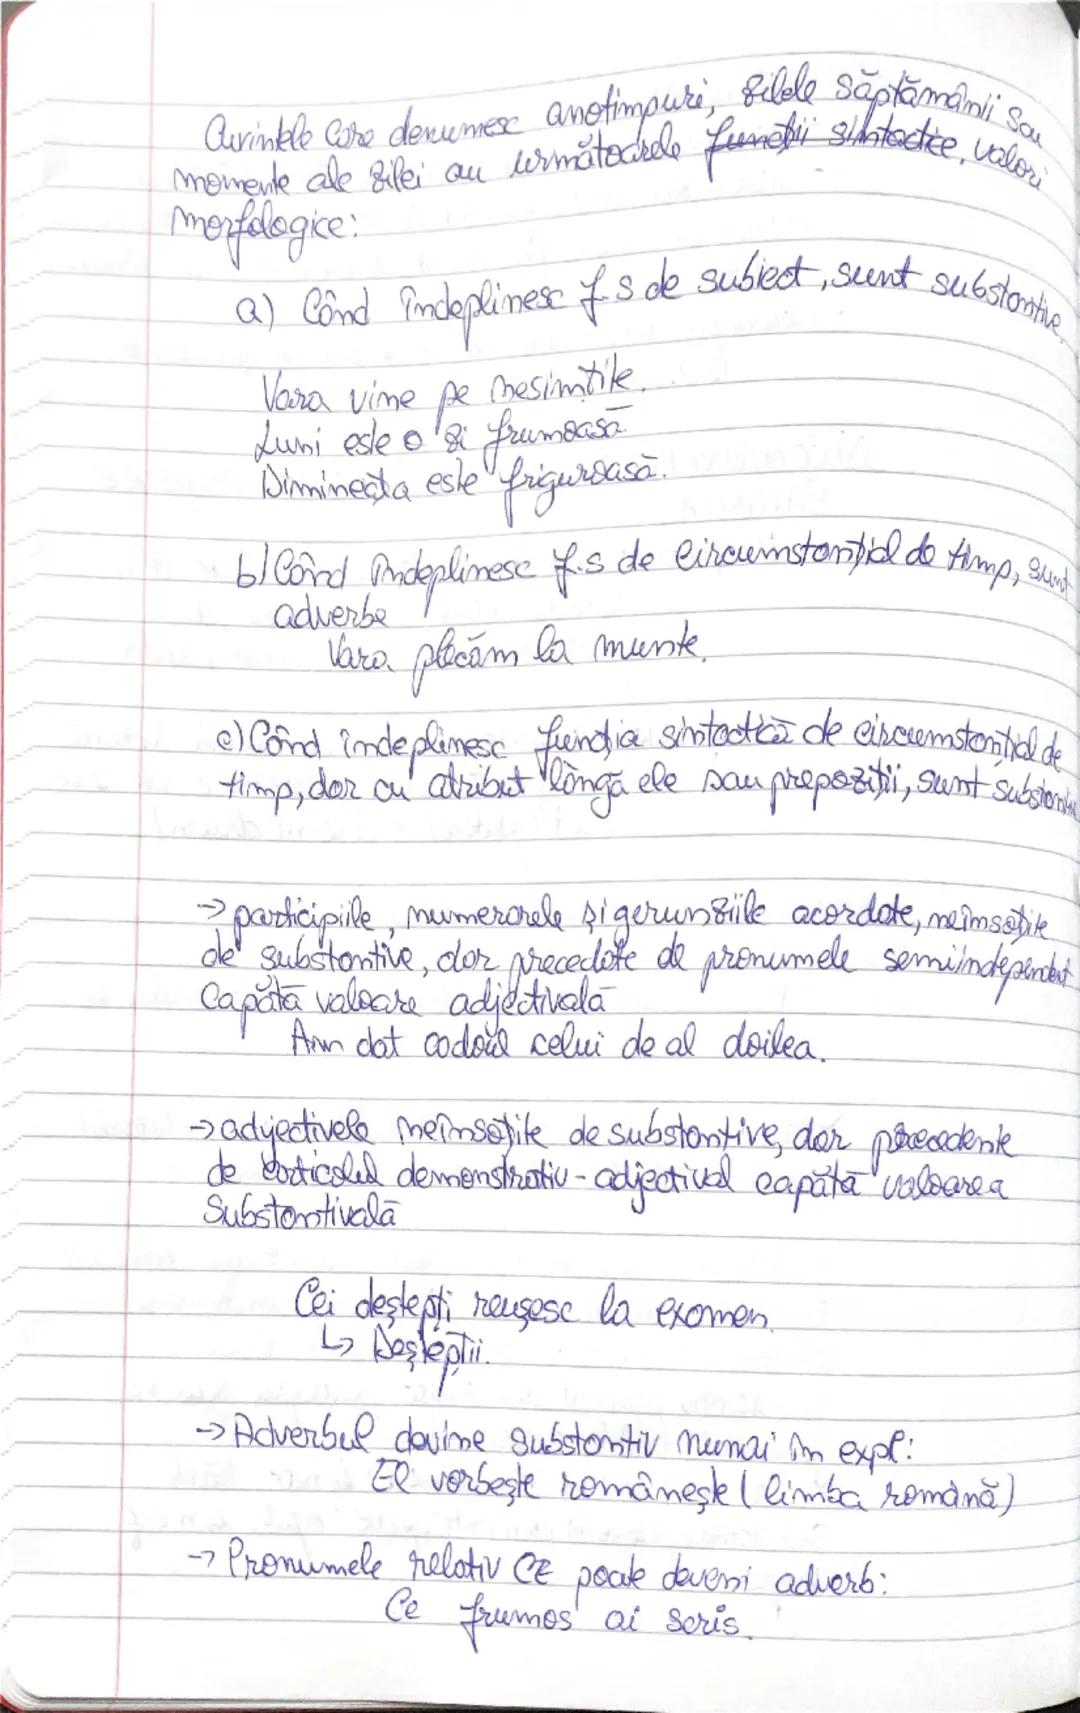 Cuvintele care denumesc anotimpuri, zilele săptămânii sau
momente ale zilei au următoarele funcții sintactice, valori
morfologice:
a) Când îndeplinesc f.s de subiect, sunt substantive.
Vara vine pe nesimțite.
Luni este o zi frumoasă.
Dimineața este friguroasă.
b) Când îndeplinesc f.s de circumstanțial de timp, sunt
adverbe
Vara plecăm la munte.
c) Când îndeplinesc funcția sintactică de circumstanțial de
timp, dar cu atribut lângă ele sau prepoziții, sunt substantive
→ participiile, numerarele și gerunziile acordate, neînsoțite
de substantive, dar precedate de pronumele semiindependent
Capătă valoare adjectivală
Am dat cadoul celui de al doilea.
→ adjectivele neînsoțite de substantive, dar precedente
de articolul demonstrativ - adjectival capătă valoarea
Substantivală
Cei deștepți reușesc la examen.
↳ Deștepții.
→ Adverbul devine substantiv numai în expl:
El vorbește românește (limba română)
→ Pronumele relativ CE poate deveni adverb:
Ce frumos ai scris.